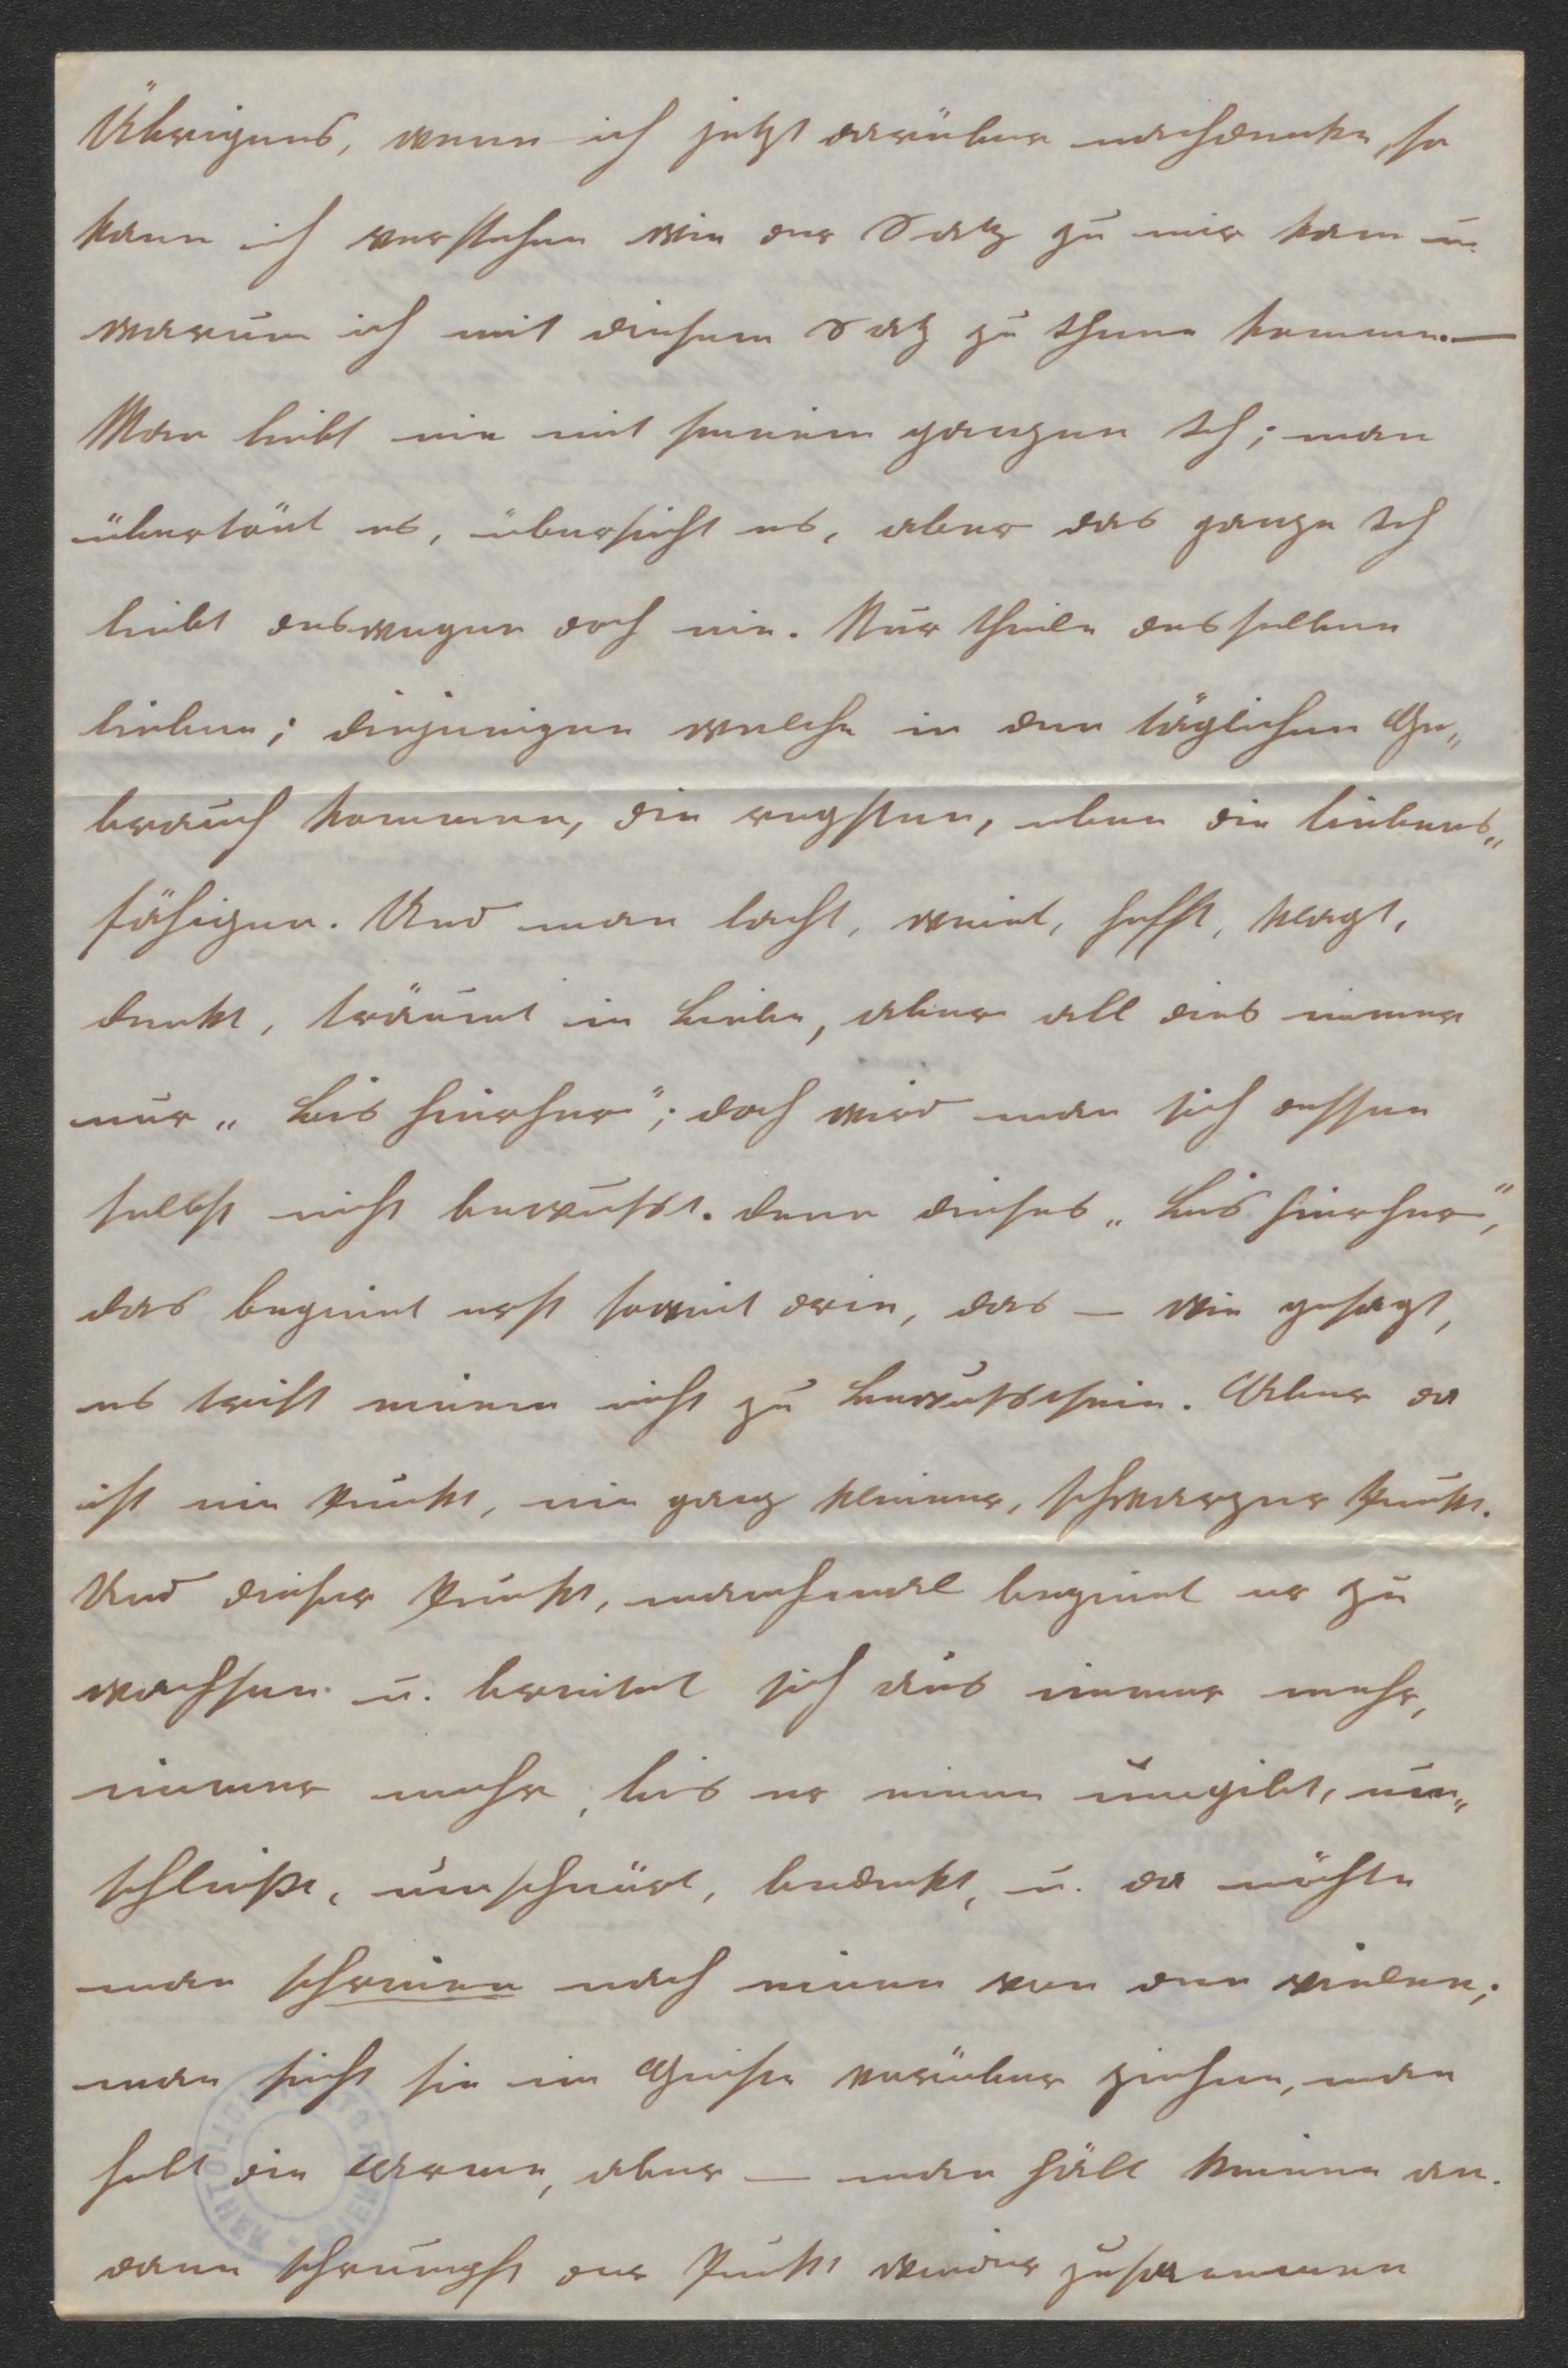 Übrigens, wenn ich jetzt darüber nachdenke, so
kann ich verstehen wie der Satz zu mir kam u.
warum ich mit diesem Satz zu thun kam. —
Man liebt nie mit seinem ganzen Ich; man
übertönt es, übersieht es, aber das ganze Ich
liebt deswegen doch nie. Nur theile desselben
lieben; diejenigen welche in den täglichen Ge„
brauch kommen, die regsten, eben die liebens„
fähigen. Und man lacht, weint, hofft, klagt,
denkt, träumt in Liebe, aber all dies immer
nur „bis hierher"; doch wird man sich dessen
selbst nicht bewußt. Denn dieses „bis hierher",
das beginnt erst soweit drin, das — wie gesagt,
es tritt einem nicht zu Bewußtsein. Aber da
ist ein Punkt, ein ganz kleiner, schwarzer Punkt.
Und dieser Punkt, manchmal beginnt er zu
wachsen u. breitet sich aus immer mehr,
immer mehr, bis er einen umgibt, um„
schließt, umschnürt, bedeckt, u. da möchte
man schreien nach einem von den vielen;
man sieht sie im Geiste vorüber ziehen, man
hebt die Arme, aber — man hält keinen an.
dann schrumpft der Punkt wieder zusammen